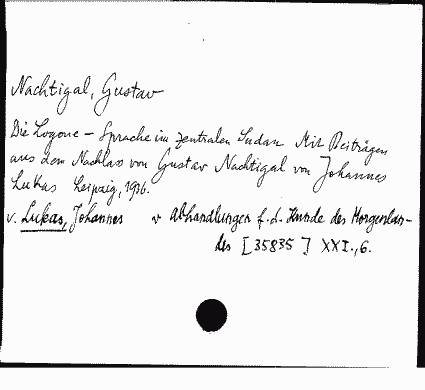 Nachtigal, Gustav
Die Logone - Sprache im zentralen Sudan Mit Beiträgen
aus dem Nachlass von Gustav Nachtigal von Johannes
Lukas Leipzig, 1936.
v. Lukas, Johannes v Abhandlungen f. d. Kunde des Morgenlan-
des [35835] XXI., 6.